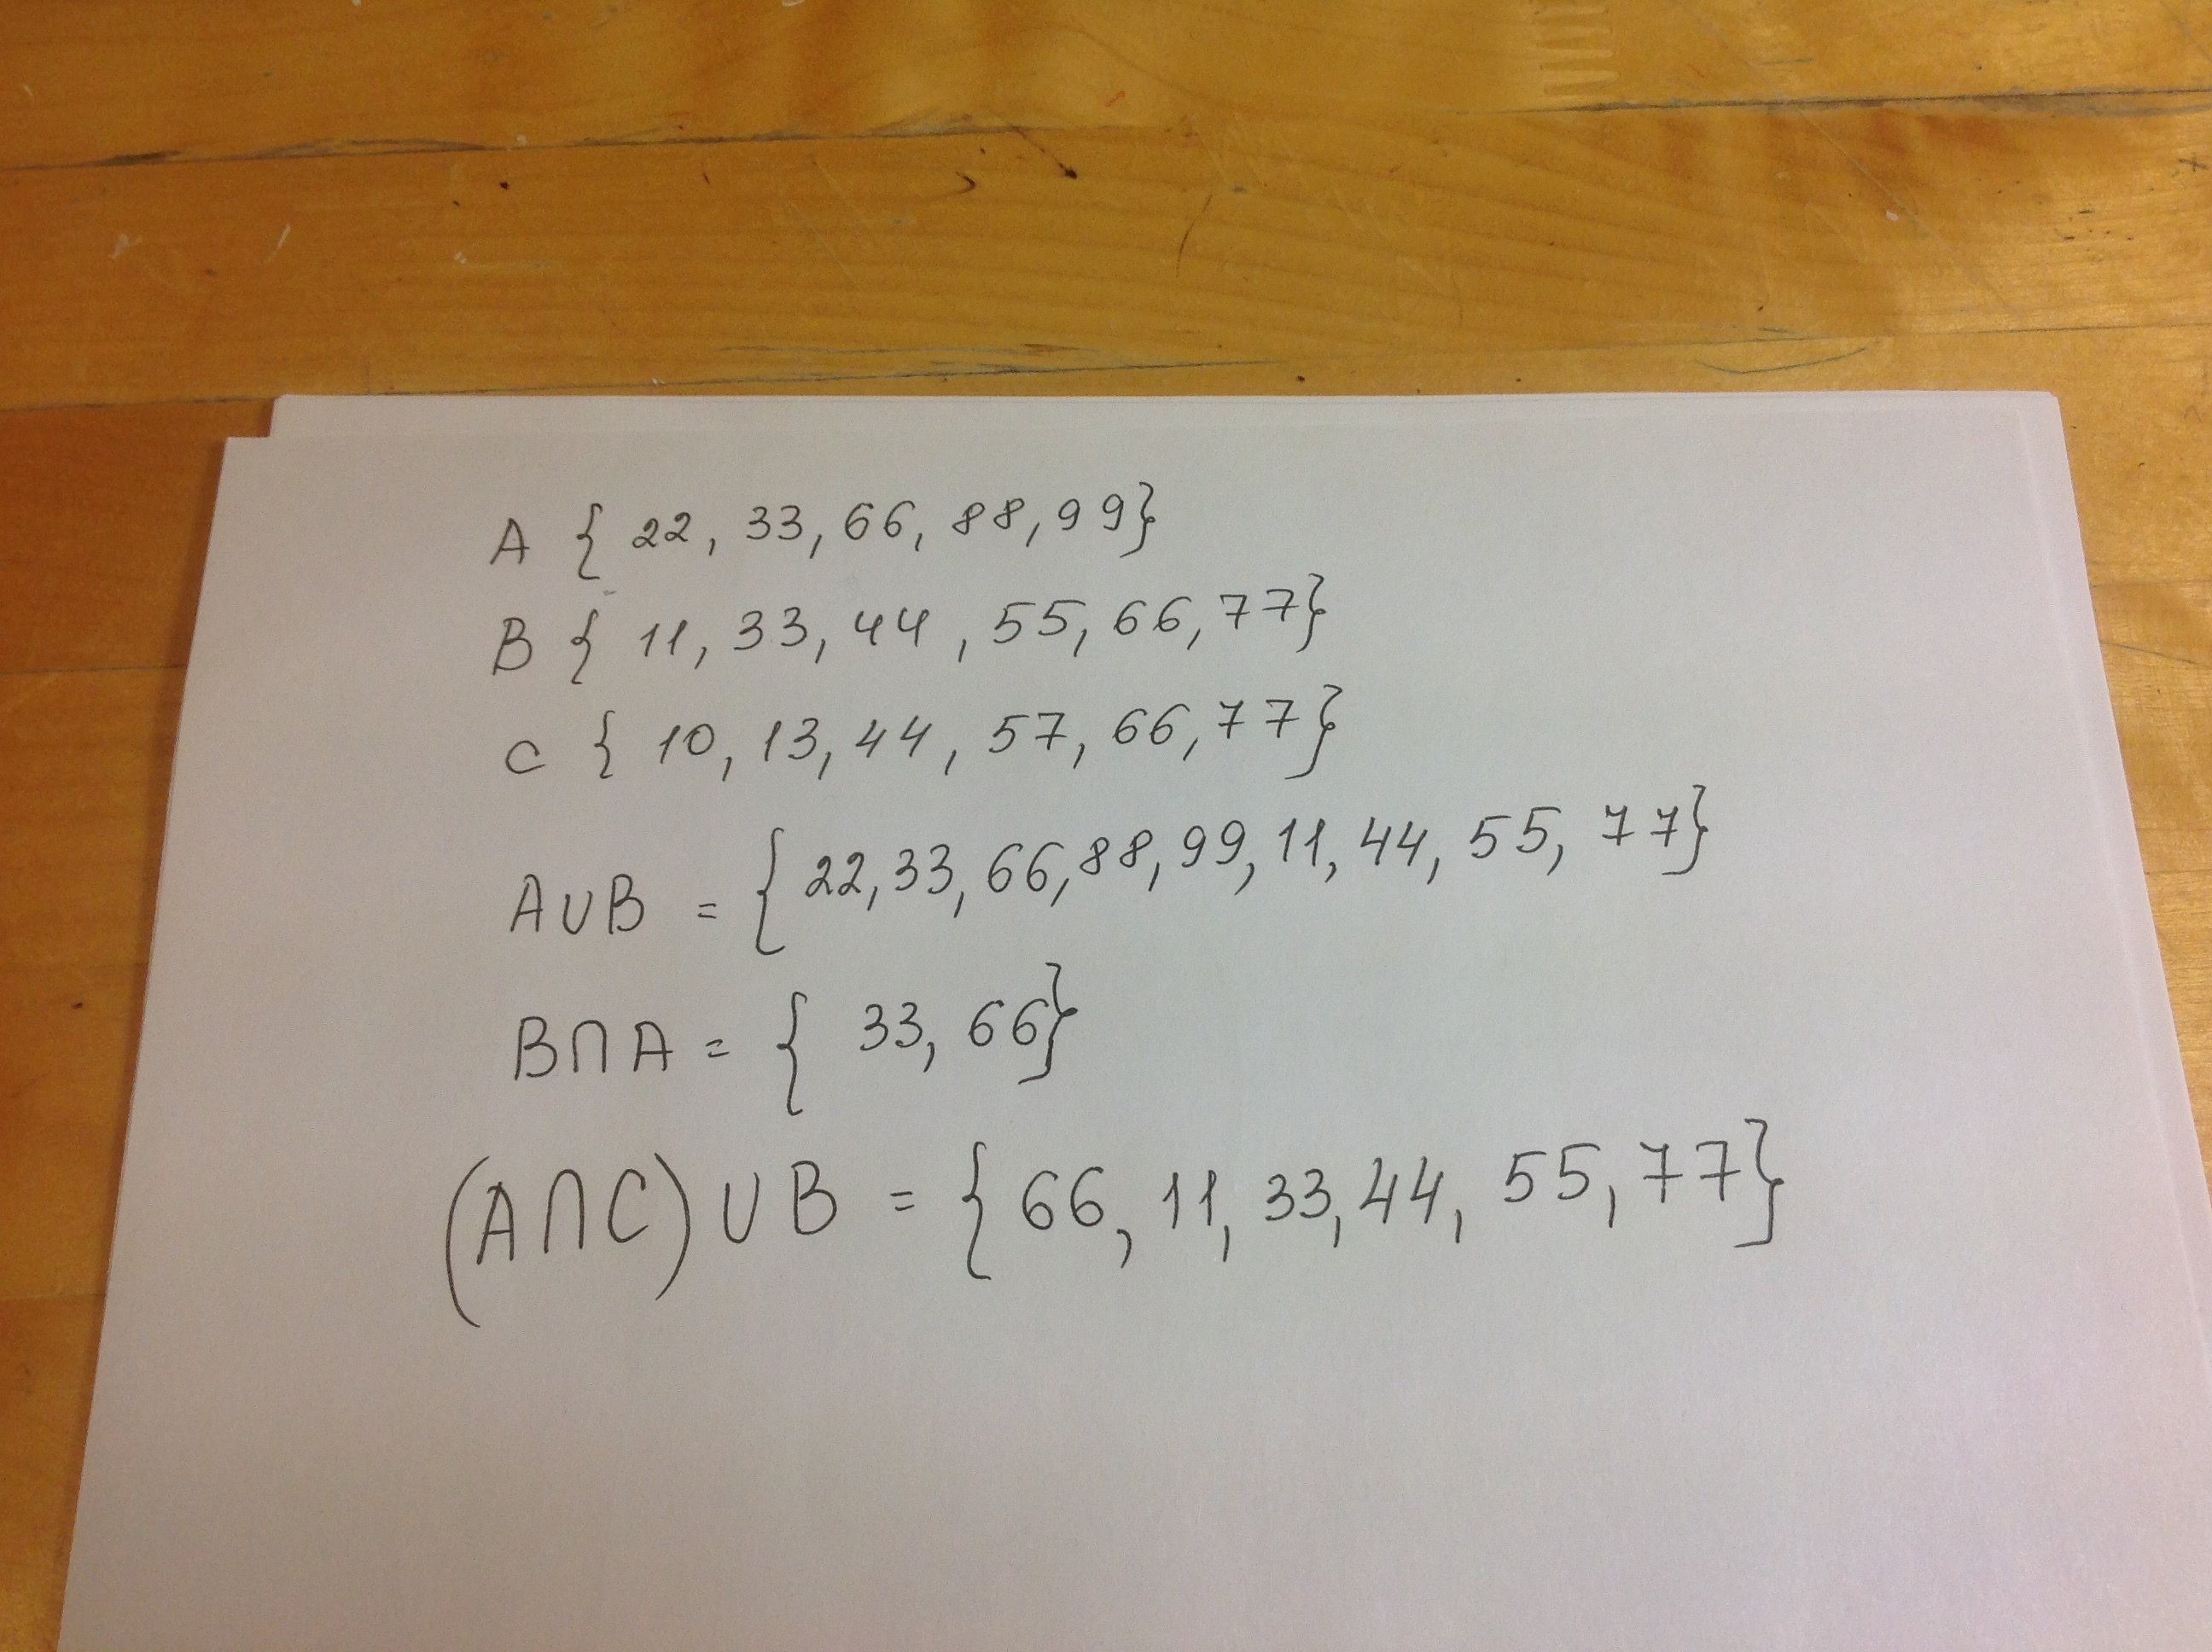 A { 22, 33, 66, 88, 99}
B { 11, 33, 44, 55, 66, 77}
C { 10, 13, 44, 57, 66, 77}
A∪B = { 22, 33, 66, 88, 99, 11, 44, 55, 77}
B∩A = { 33, 66}
(A∩C) ∪ B = { 66, 11, 33, 44, 55, 77}